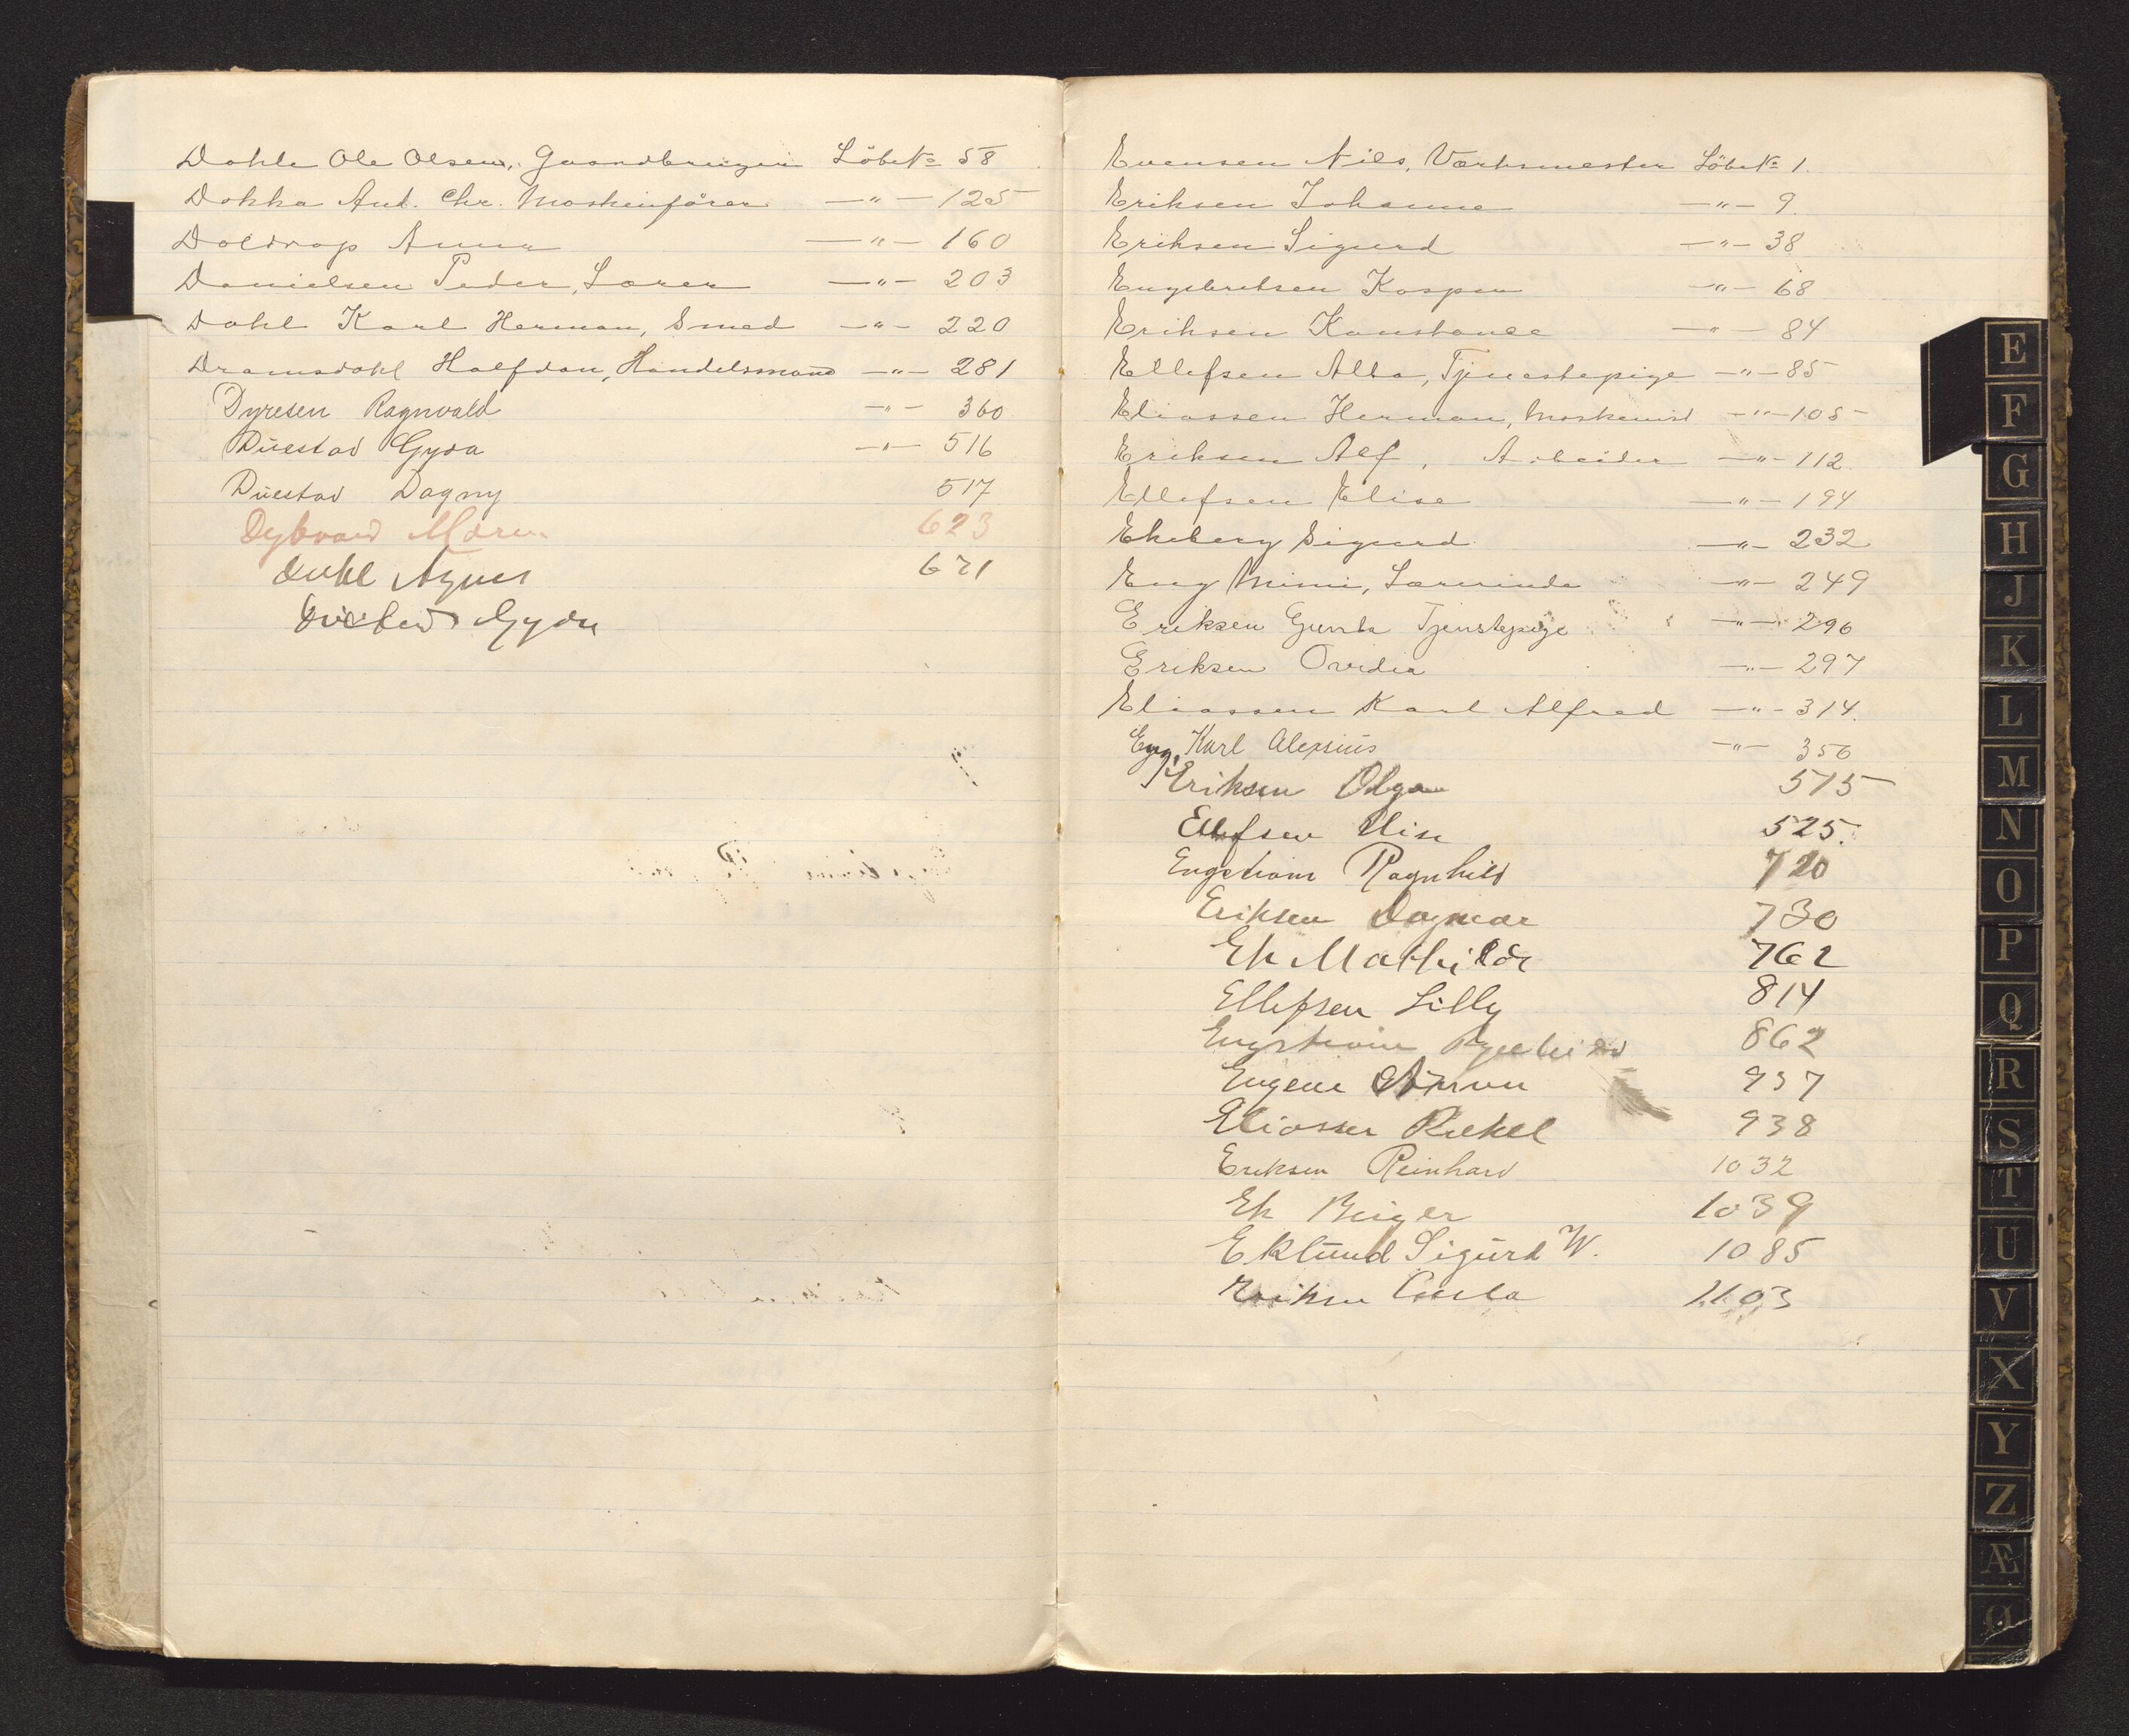 Dahle Ole Olsen, Gaardbruger Löbe № 58
Dokka Ant. Chr. Maskinförer —"— 125
Doldrop Anna —"— 160
Danielsen Peder, Lærer —"— 203
Dahl Karl Herman, Smed —"— 220
Dramsdahl Halfdan, Handelsmand —"— 281
Dyresen Ragnvald —"— 360
Duestad Gyda —"— 516
Duestad Dagny 517
Dybvad Maren 623
Dahl Agnes 671
Duestad Gyda
Evensen Nils, Værksmester Löbe № 1.
Eriksen Johanne —"— 9.
Eriksen Sigurd —"— 38
Engebretsen Kasper —"— 68
Eriksen Konstanse —"— 84
Ellefsen Alta, Tjenestepige —"— 85
Eliassen Herman, Maskinist —"— 105
Eriksen Alf, Arbeider —"— 112
Ellefsen Elise —"— 194
Ekeberg Sigurd —"— 232
Eng Mimi, Lærerinde —"— 249
Eriksen Gunda Tjenstepige —"— 296
Eriksen Ovidia —"— 297
Eliassen Karl Alfred —"— 314.
Eng, Karl Alexsius —"— 356
Eriksen Olga 515
Ellefsen Elise 525.
Engstrøm Ragnhild 720
Eriksen Dagmar 730
Ek Mathilde 762
Ellefsen Lilly 814
Engstrøm Ragnhild 862
Eugene 937
Eliassen Rakel 938
Eriksen Reinhard 1032
Ek Birger 1039
Eklund Sigurd W. 1085
Eriksen 1103
E
F
G
H
J
K
L
M
N
O
P
Q
R
S
T
U
V
X
Y
Z
Æ
Ø